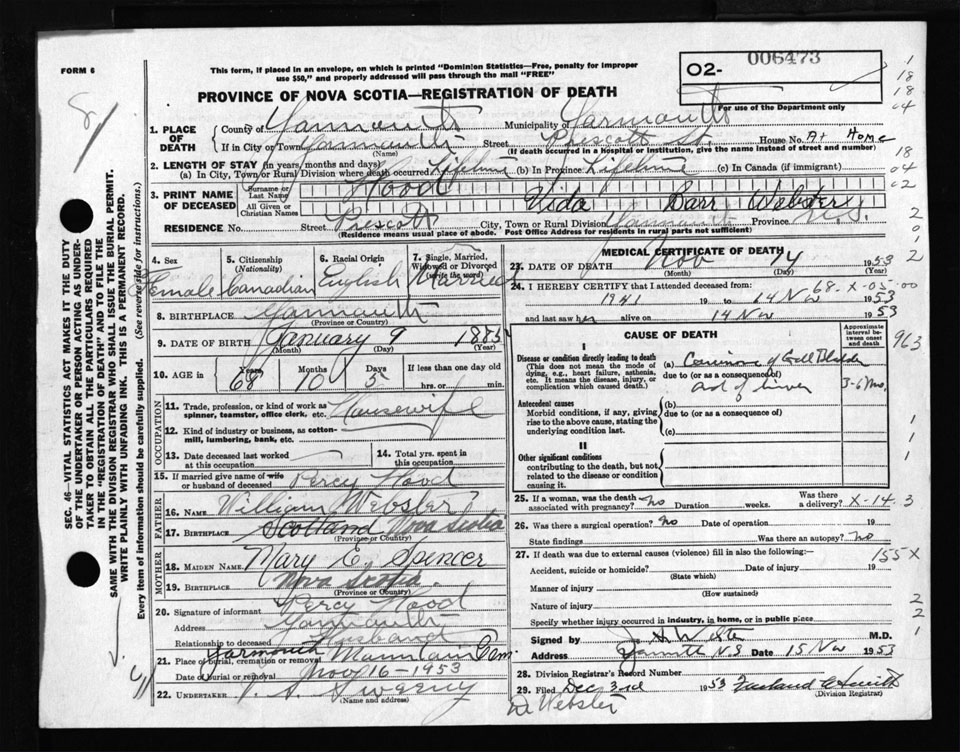 FORM 6
This form, if placed in an envelope, on which is printed "Dominion Statistics—Free, penalty for improper
use $50," and properly addressed will pass through the mail "FREE"
02- 006473
For use of the Department only
PROVINCE OF NOVA SCOTIA—REGISTRATION OF DEATH
1. PLACE OF DEATH
County of Yarmouth Municipality of Yarmouth
If in City or Town Yarmouth (Name) Street Prescott St. House No. At Home
(If death occurred in a hospital or institution, give the name instead of street and number)
2. LENGTH OF STAY (in years, months and days)
(a) In City, Town or Rural Division where death occurred Lifetime (b) In Province Lifetime (c) In Canada (if immigrant)
3. PRINT NAME OF DECEASED
Surname or Last Name Hood
All Given or Christian Names Vida Barr Webster
RESIDENCE No. Street Prescott City, Town or Rural Division Yarmouth Province N.S.
(Residence means usual place of abode. Post Office Address for residents in rural parts not sufficient)
4. Sex Female
5. Citizenship (Nationality) Canadian
6. Racial Origin English
7. Single, Married, Widowed or Divorced (write the word) Married
8. BIRTHPLACE Yarmouth
(Province or Country)
9. DATE OF BIRTH January 9 1885
(Month) (Day) (Year)
10. AGE in Years 68 Months 10 Days 5 If less than one day old
hrs. or min.
OCCUPATION
11. Trade, profession, or kind of work as spinner, teamster, office clerk, etc. Housewife
12. Kind of industry or business, as cotton-mill, lumbering, bank, etc.
13. Date deceased last worked at this occupation
14. Total yrs. spent in this occupation
15. If married give name of wife or husband of deceased Percy Hood
FATHER
16. NAME William Webster
17. BIRTHPLACE Scotland Nova Scotia
(Province or Country)
MOTHER
18. MAIDEN NAME Mary E. Spencer
19. BIRTHPLACE Nova Scotia.
(Province or Country)
20. Signature of informant Percy Hood
Address Yarmouth
Relationship to deceased Husband
21. Place of burial, cremation or removal Yarmouth Mountain Cem
Date of burial or removal Nov 16-1953
22. UNDERTAKER V. S. Sweeny
(Name and address)
MEDICAL CERTIFICATE OF DEATH
23. DATE OF DEATH Nov 14 1953
(Month) (Day)
24. I HEREBY CERTIFY that I attended deceased from:
68.-X-05-00
1941 19 to 14 Nov 1953
and last saw her alive on 14 Nov 1953
CAUSE OF DEATH
Approximate interval between onset and death
I
Disease or condition directly leading to death
(This does not mean the mode of dying, e.g., heart failure, asthenia, etc. It means the disease, injury, or complication which caused death.)
(a) Carcinoma of Gall Bladder
due to (or as a consequence of)
and of Liver 3-6 Mo.
Antecedent causes
Morbid conditions, if any, giving rise to the above cause, stating the underlying condition last.
(b)
due to (or as a consequence of)
(c)
II
Other significant conditions
contributing to the death, but not related to the disease or condition causing it.
25. If a woman, was the death associated with pregnancy? No Duration weeks. Was there a delivery? X-14 3
26. Was there a surgical operation? No Date of operation 19
State findings Was there an autopsy? No
27. If death was due to external causes (violence) fill in also the following:— 155 X
Accident, suicide or homicide? Date of injury 19
(State which)
Manner of injury
(How sustained)
Nature of injury
Specify whether injury occurred in industry, in home, or in public place
Signed by M.D.
Address Yarmouth N.S Date 15 Nov 1953
28. Division Registrar's Record Number
29. Filed Dec 3rd 1953
(Division Registrar)
Dr Webster
SEC. 46—VITAL STATISTICS ACT MAKES IT THE DUTY
OF THE UNDERTAKER OR PERSON ACTING AS UNDER-
TAKER TO OBTAIN ALL THE PARTICULARS REQUIRED
IN THE "REGISTRATION OF DEATH" AND TO FILE THE
SAME WITH THE DIVISION REGISTRAR WHO SHALL ISSUE THE BURIAL PERMIT.
WRITE PLAINLY WITH UNFADING INK. THIS IS A PERMANENT RECORD.
Every item of information should be carefully supplied. (See reverse side for instructions.)
1
18
18
04
18
04
02
2
0
1
2
963
1
1
1
2
2
1